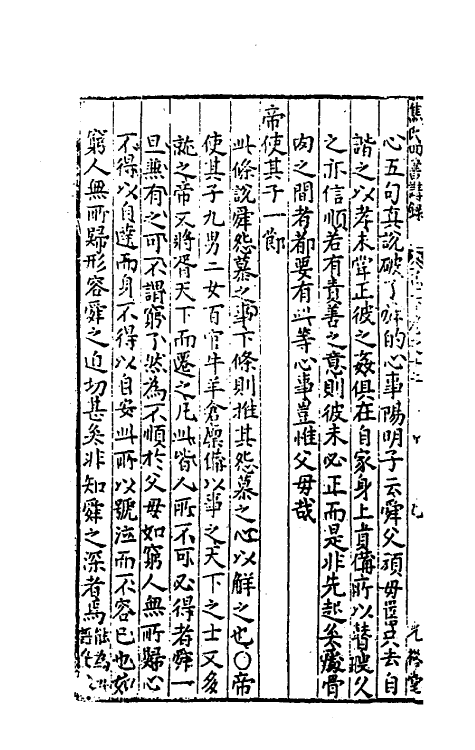 焦氏四書講錄
心五句真說破了舜的心事陽明子云舜父頑母嚚只去自
諧之以孝未嘗正彼之姦俱在自家身上責備所以瞽瞍久
之亦信順若有責善之意則彼未必正而是非先起矣故骨
肉之間者都要有此等心事豈惟父母哉
帝使其子一節
此條說舜怨慕之事下條則推其怨慕之心以解之也〇帝
使其子九男二女百官牛羊倉廩備以事之天下之士又多
就之帝又將胥天下而遷之凡此皆人所不可必得者舜一
旦兼有之可不謂窮了然為不順於父母如窮人無所歸心
不得以自達而身不得以自安此所以號泣而不容已也如
窮人無所歸形容舜之迫切甚矣非知舜之深者焉能為此語